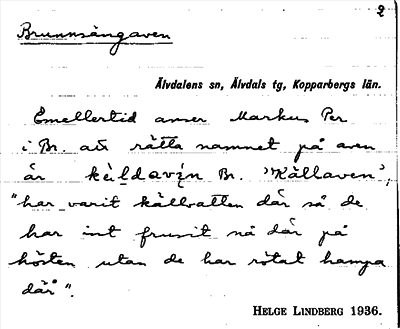 2
Brunnsängaven
Älvdalens sn, Älvdals tg, Kopparbergs län.
Emellertid anser Markus Per
i Br. att rätta namnet på aven
är Br. "Källaven",
"har varit källvatten där så de
har int frusit nå där på
hösten utan de har rötat hampa
där".
HELGE LINDBERG 1936.